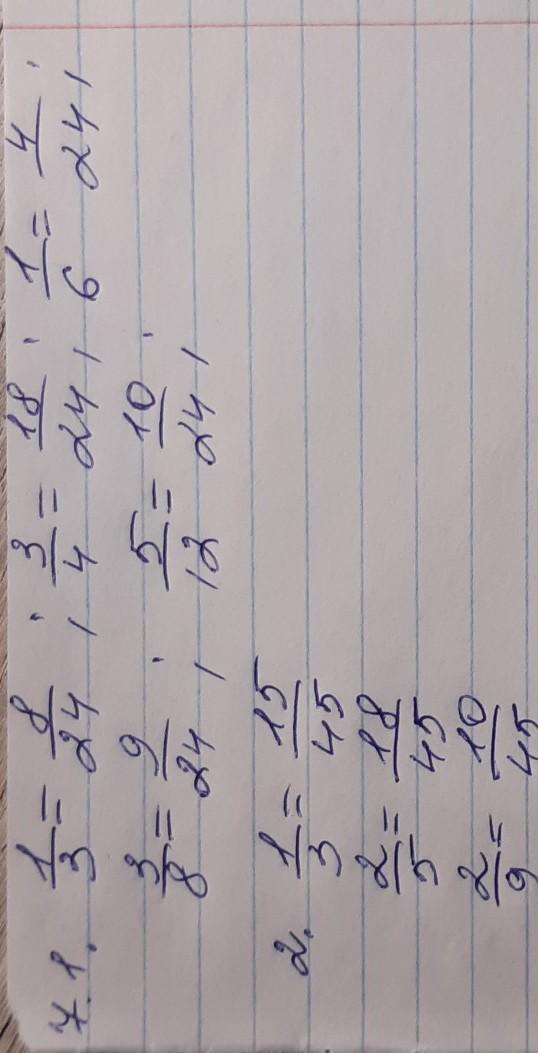 7.1. 1/3 = 8/24; 3/4 = 18/24; 1/6 = 4/24;
3/8 = 9/24; 5/12 = 10/24;
2. 1/3 = 15/45
2/5 = 18/45
2/9 = 10/45